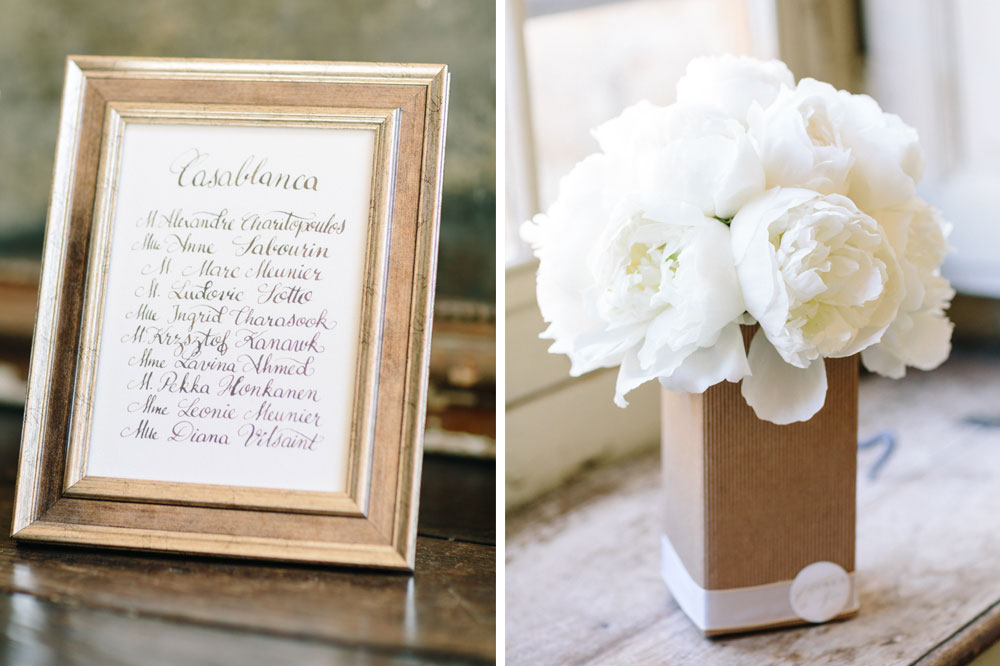 Casablanca
M. Alexandre Charitopoulos
Mlle Anne Sabourin
M. Marc Meunier
M. Ludovic Scotto
Mlle Ingrid Charasook
M. Krzysztof Kanawk
Mme Lavina Ahmed
M. Pekka Honkanen
Mme Leonie Meunier
Mlle Diana Vilsaint